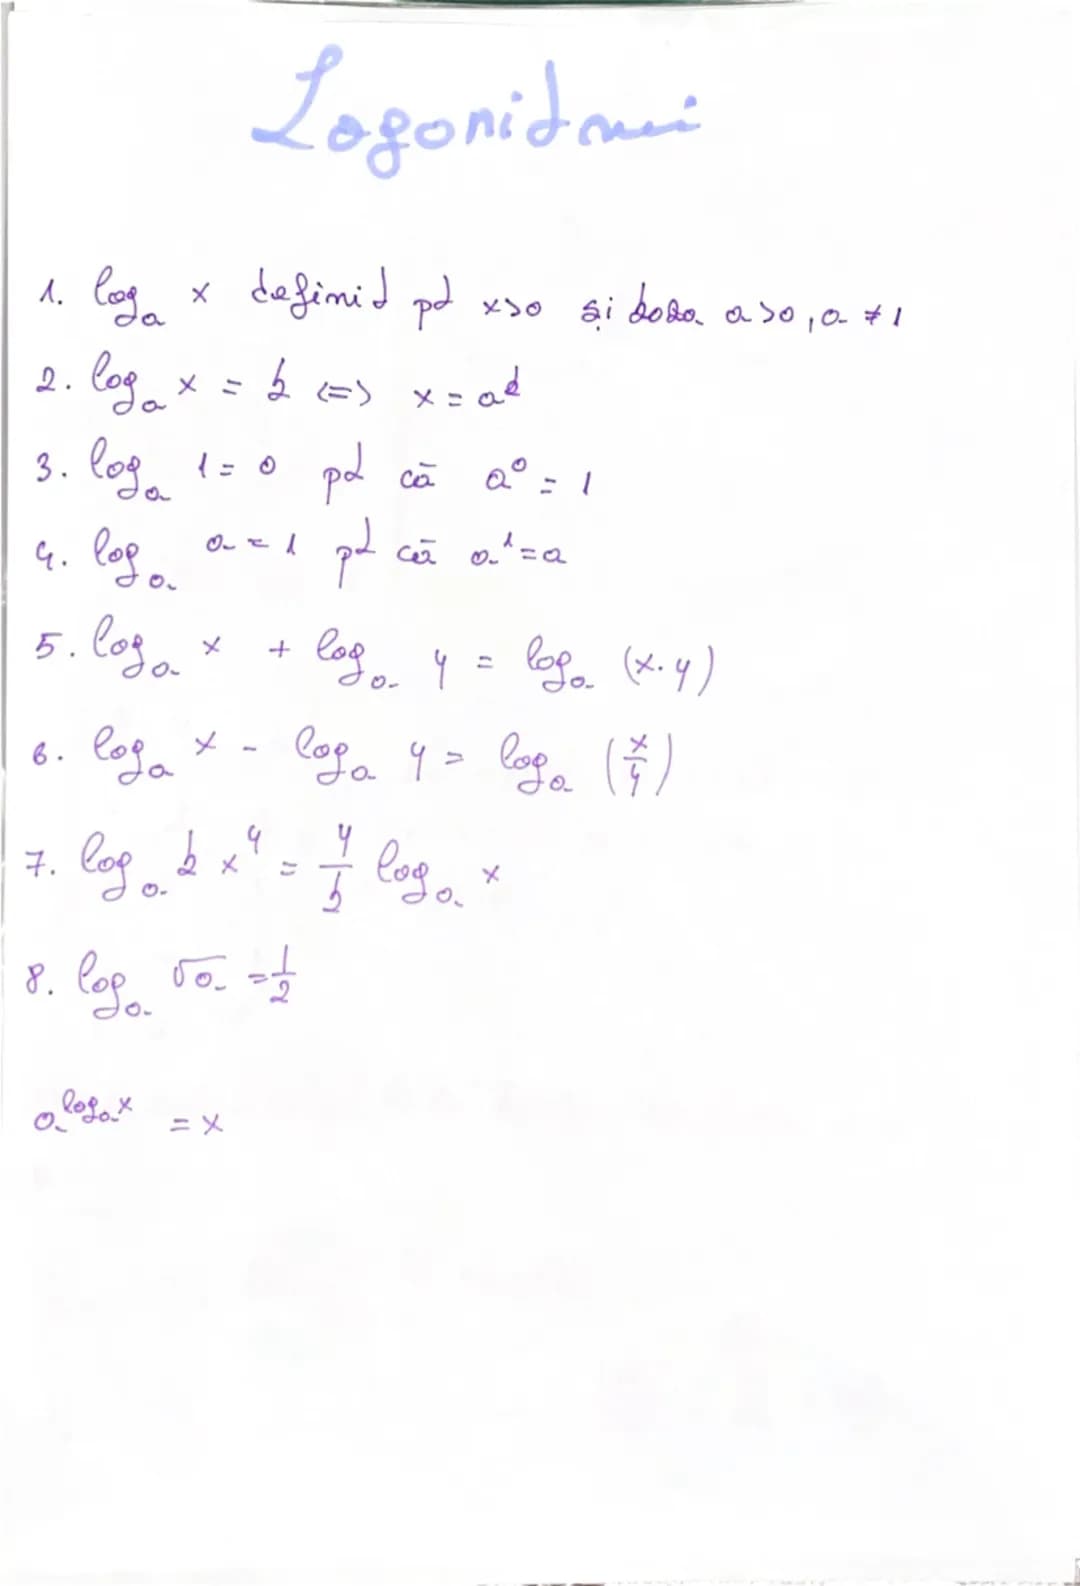 Logaritmi
1. logₐ x definit pt x>0 și baza a>0, a≠1
2. logₐ x = b <=> x = aᵇ
3. logₐ 1 = 0 pt că a⁰ = 1
4. logₐ a = 1 pt că a¹ = a
5. logₐ x + logₐ y = logₐ (x·y)
6. logₐ x - logₐ y = logₐ (x/y)
7. logₐ b x^y = y/b logₐ x
8. logₐ √a = 1/2
a^(logₐ x) = x